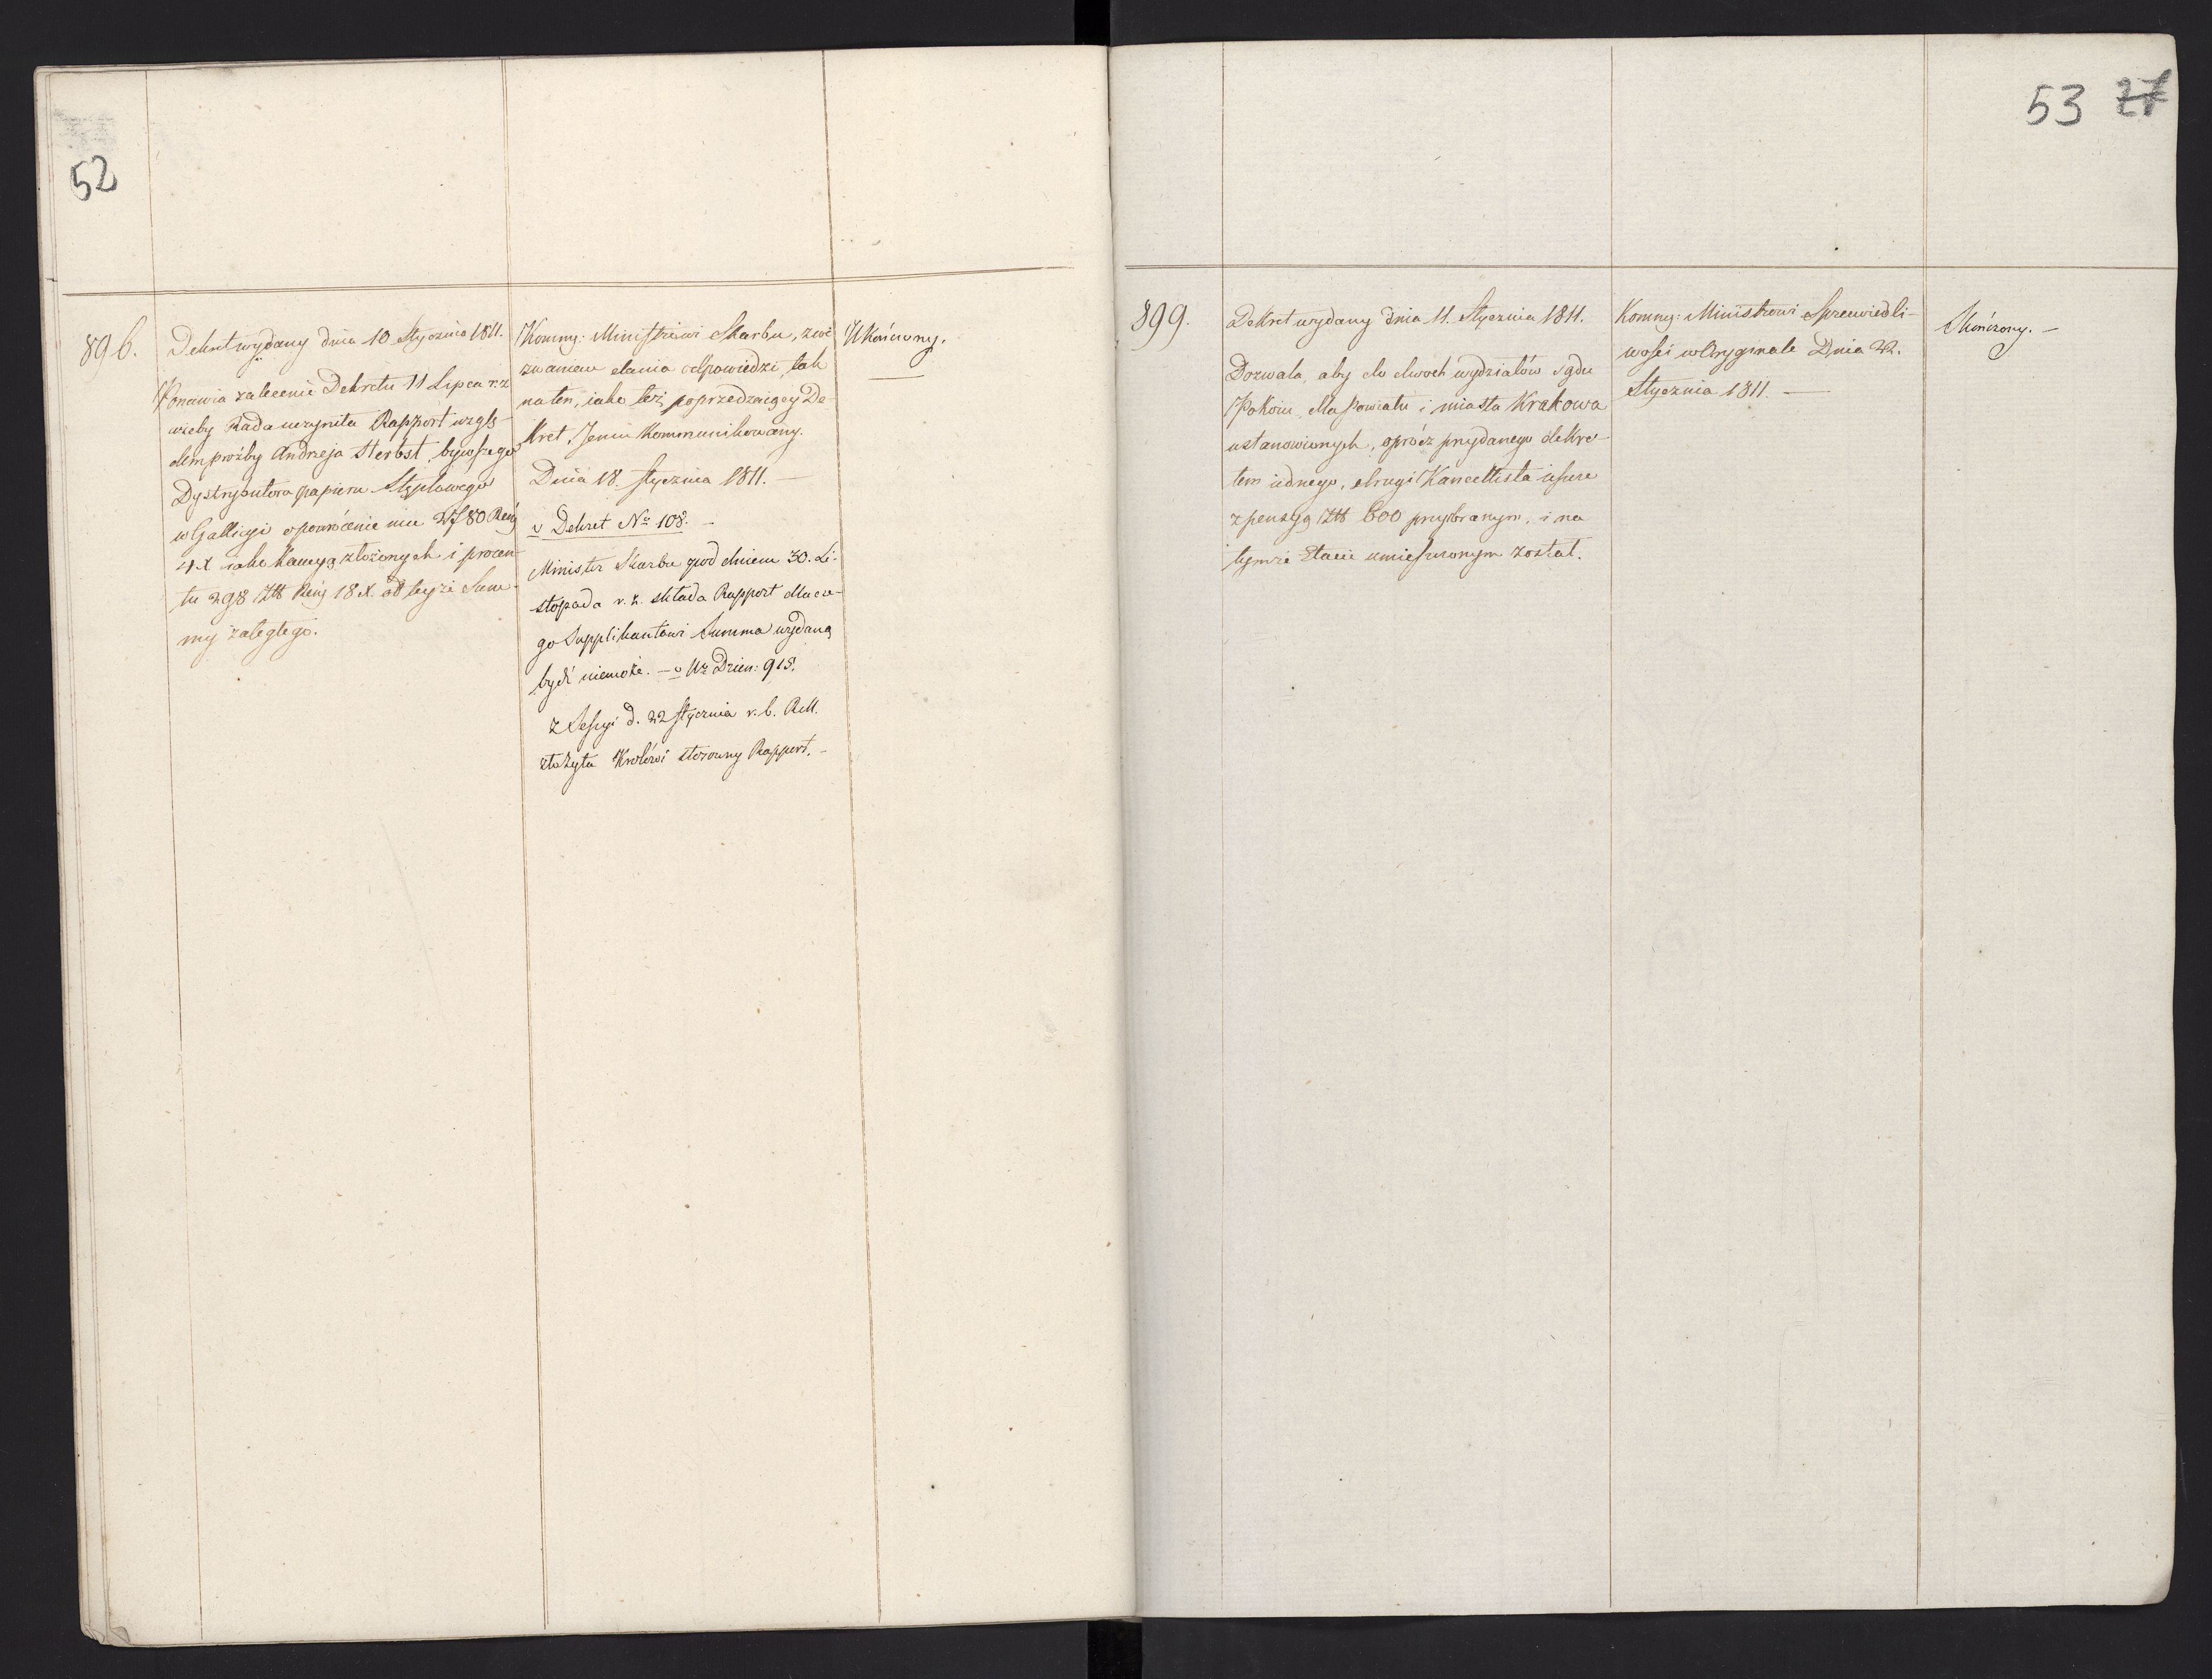 52
896.
Dekret wydany dnia 10 Stycznia 1811.
Ponawia zalecenie Dekretu 11 Lipca r. z
ażeby Rada uczyniła Rapport wzglę-
dem proźby Andrzeja Herbst, bywszego
Dystrybutora papieru Stęplowego
w Gallicyi o powrócenie mu 80 Reńs
4 x iako Kaucyą złożonych i procen-
tu 298 Złł Reńs 18 x. od teyże Sum-
my zaległego.
Kommg: Ministrowi Skarbu, z we
zwaniem dania odpowiedzi, tak
na ten, iako też poprzedzaiący De-
kret Jemu kommunikowany.
Dnia 18. stycznia 1811. —
v Dekret No 108. —
Minister Skarbu pod dniem 30. Li-
stopada r. z. składa Rapport dlacze-
go Supplikantowi Summa wydaną
bydź niemoże. — v Nr Dzien: 915.
z Sessyi d. 22 stycznia r. b. RM.
złożyła Królowi stosowny Rapport. —
Ukończony.
53 27
899.
Dekret wydany dnia 11. Stycznia 1811.
Dozwala, aby do dwoch wydziałów sądu
Pokoiu dla Powiatu i miasta Krakowa
ustanowionych, oprócz przydanego dekre-
tem iednego, drugi Kancellista ieszcze
z pensyą Złł 600 przybranym, i na
tymże Etacie umieszczonym został.
Kommg: Ministrowi Sprawiedli-
wości w Oryginale Dnia 22.
Stycznia 1811. —
Skończony. —